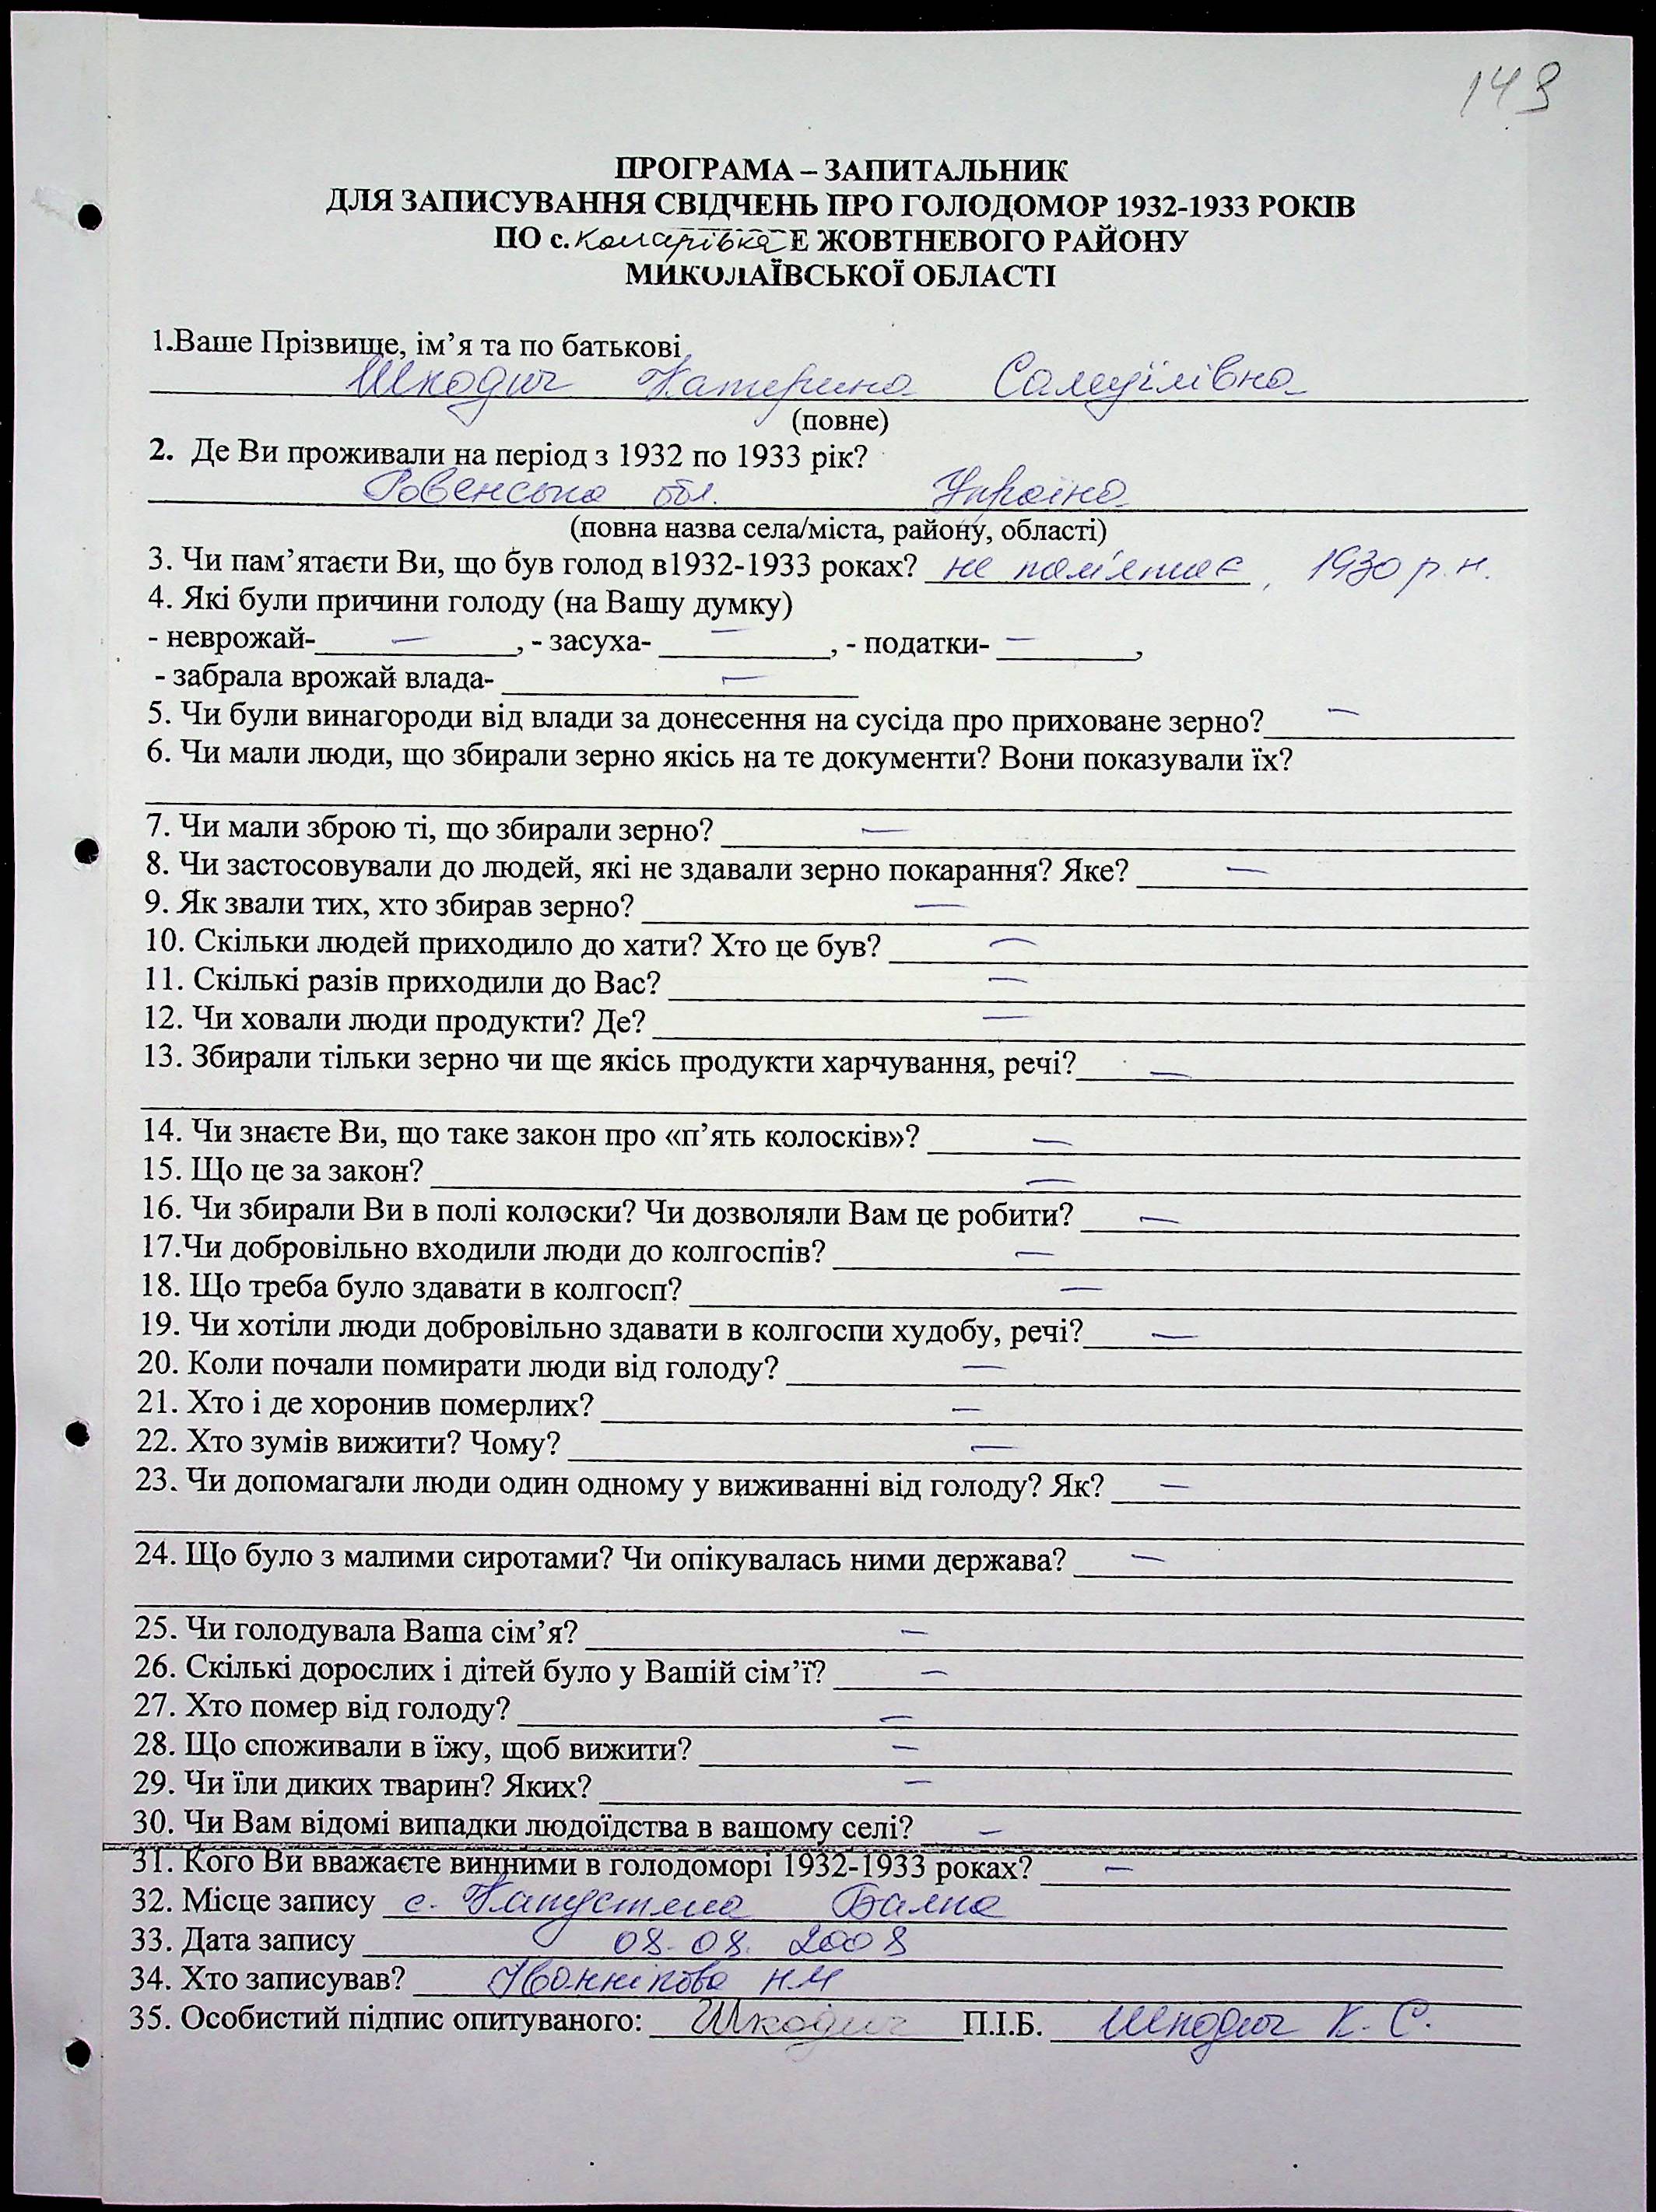 143
ПРОГРАМА – ЗАПИТАЛЬНИК
ДЛЯ ЗАПИСУВАННЯ СВІДЧЕНЬ ПРО ГОЛОДОМОР 1932-1933 РОКІВ
ПО с. Комарівка Е ЖОВТНЕВОГО РАЙОНУ
МИКОЛАЇВСЬКОЇ ОБЛАСТІ
1.Ваше Прізвище, ім’я та по батькові
Шкодич Катерина Самуїлівна
(повне)
2. Де Ви проживали на період з 1932 по 1933 рік?
Ровенська обл. Україна
(повна назва села/міста, району, області)
3. Чи пам’ятаєти Ви, що був голод в1932-1933 роках? не пам'ятає, 1930 р.н.
4. Які були причини голоду (на Вашу думку)
- неврожай- – , - засуха- – , - податки- – ,
- забрала врожай влада- –
5. Чи були винагороди від влади за донесення на сусіда про приховане зерно? –
6. Чи мали люди, що збирали зерно якісь на те документи? Вони показували їх?
7. Чи мали зброю ті, що збирали зерно? –
8. Чи застосовували до людей, які не здавали зерно покарання? Яке? –
9. Як звали тих, хто збирав зерно? –
10. Скільки людей приходило до хати? Хто це був? –
11. Скількі разів приходили до Вас? –
12. Чи ховали люди продукти? Де? –
13. Збирали тільки зерно чи ще якісь продукти харчування, речі? –
14. Чи знаєте Ви, що таке закон про «п’ять колосків»? –
15. Що це за закон? –
16. Чи збирали Ви в полі колоски? Чи дозволяли Вам це робити? –
17.Чи добровільно входили люди до колгоспів? –
18. Що треба було здавати в колгосп? –
19. Чи хотіли люди добровільно здавати в колгоспи худобу, речі? –
20. Коли почали помирати люди від голоду? –
21. Хто і де хоронив померлих? –
22. Хто зумів вижити? Чому? –
23. Чи допомагали люди один одному у виживанні від голоду? Як? –
24. Що було з малими сиротами? Чи опікувалась ними держава? –
25. Чи голодувала Ваша сім’я? –
26. Скількі дорослих і дітей було у Вашій сім’ї? –
27. Хто помер від голоду? –
28. Що споживали в їжу, щоб вижити? –
29. Чи їли диких тварин? Яких? –
30. Чи Вам відомі випадки людоїдства в вашому селі? –
31. Кого Ви вважаєте винними в голодоморі 1932-1933 роках? –
32. Місце запису с. Капустяна Балка
33. Дата запису 08.08. 2008
34. Хто записував? Іваннікова Н М
35. Особистий підпис опитуваного: Шкодич П.І.Б. Шкодич К. С.